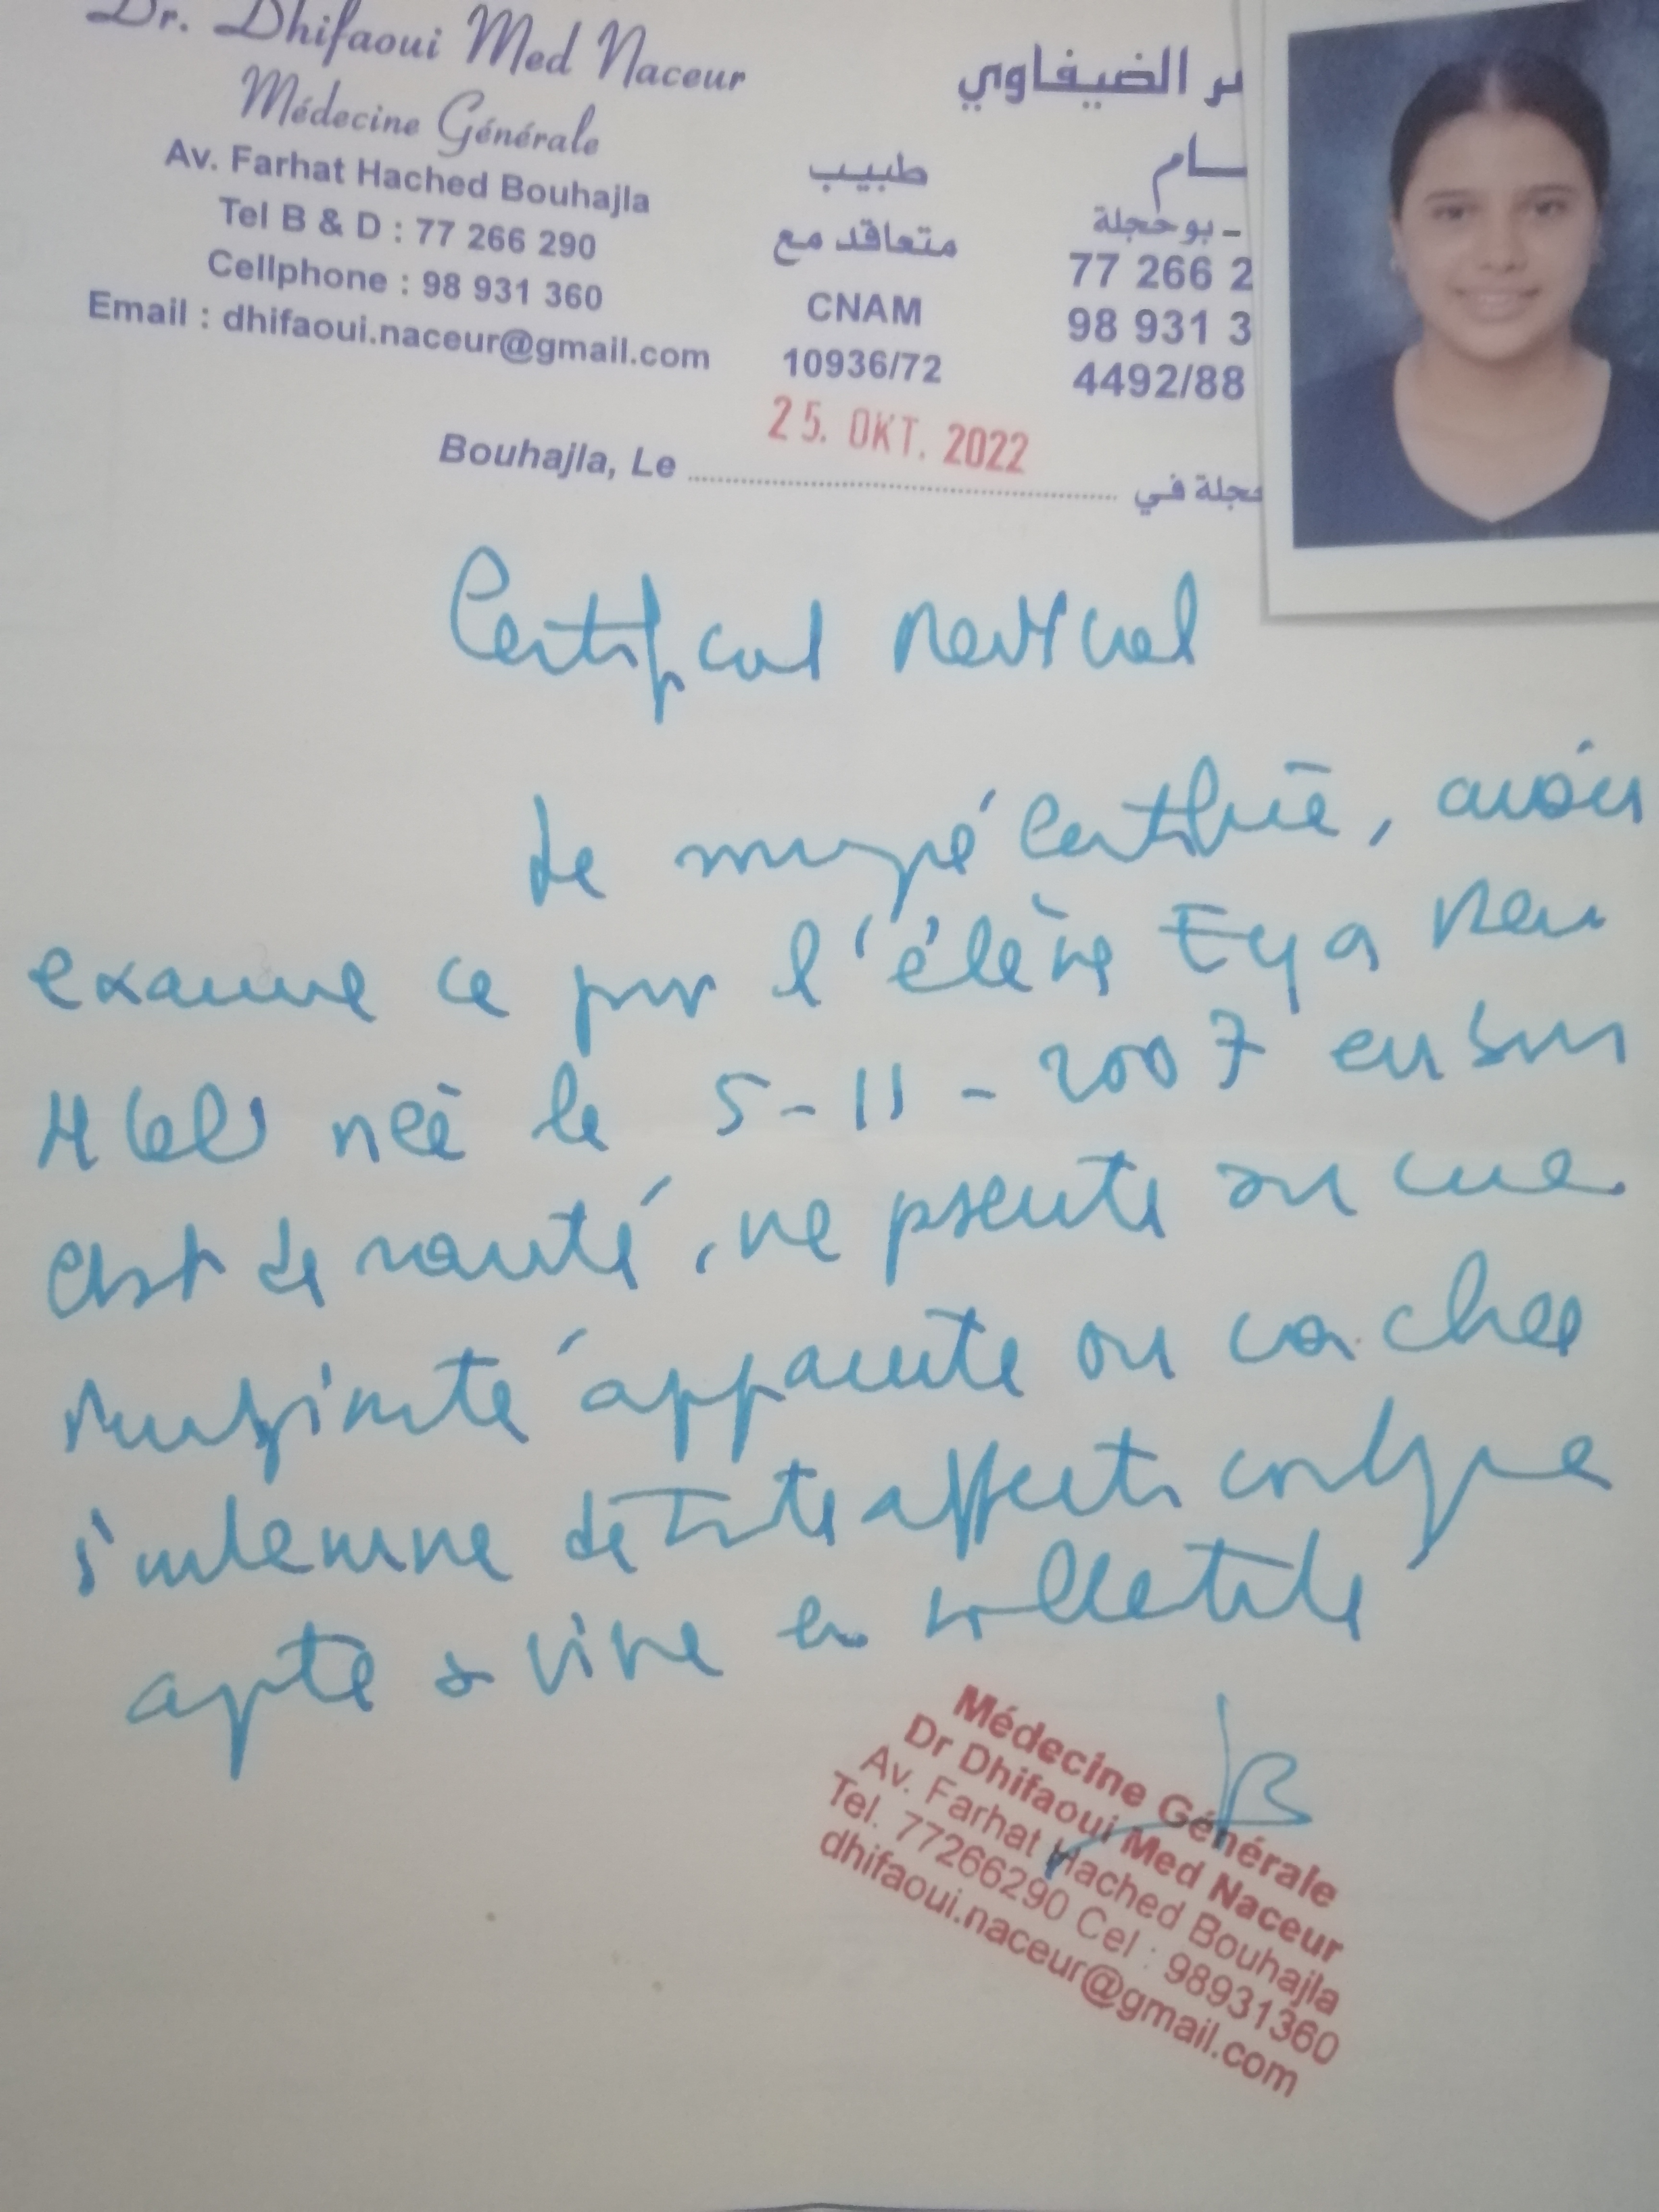 Dr. Dhifaoui Med Naceur
Médecine Générale
Av. Farhat Hached Bouhajla
Tel B & D : 77 266 290
Cellphone : 98 931 360
Email : dhifaoui.naceur@gmail.com
طبيب
متعاقد مع
CNAM
10936/72
ـر الضيفاوي
ـــام
ـ بوحجلة
77 266 2
98 931 3
4492/88
25. OKT. 2022
Bouhajla, Le
حجلة في
Certificat medical
Je certifie, avoir
examiné ce jour l'élève Eya
née le 5-11-2007 en bon
état de santé, ne présente aucune
infirmité apparente ou cachée
indemne de toute affection contagieuse
apte à vivre en collectivité
Médecine Générale
Dr Dhifaoui Med Naceur
Av. Farhat Hached Bouhajla
Tel. 77266290 Cel : 98931360
dhifaoui.naceur@gmail.com